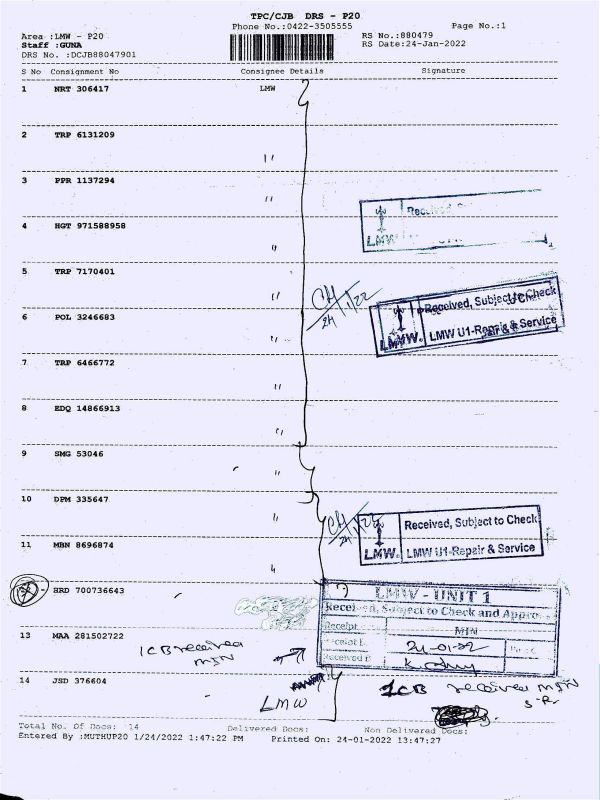 TPC/CJB DRS - P20
Phone No.:0422-3505555 Page No.:1
Area :LMW - P20 RS No.:880479
Staff :GUNA RS Date:24-Jan-2022
DRS No. :DCJB88047901
S No Consignment No Consignee Details Signature
1 NRT 306417 LMW
2 TRP 6131209 "
3 PPR 1137294 "
Received
LMW
4 HGT 971588958 "
5 TRP 7170401 "
24/1/22
Received, Subject to Check
LMW. LMW U1-Repair & Service
6 POL 3246683 "
7 TRP 6466772 "
8 EDQ 14866913 "
9 SMG 53046 "
10 DPM 335647 "
Received, Subject to Check
LMW. LMW U1-Repair & Service
11 MBN 8696874 "
HRD 700736643
LMW - UNIT 1
Received, Subject to Check and
Receipt MIN
24-01-22
Received
13 MAA 281502722
1CB received
MIN
14 JSD 376604
LMW
1CB received MIN
S.R.
Total No. Of Docs: 14 Delivered Docs: Non Delivered Docs:
Entered By :MUTHUP20 1/24/2022 1:47:22 PM Printed On: 24-01-2022 13:47:27